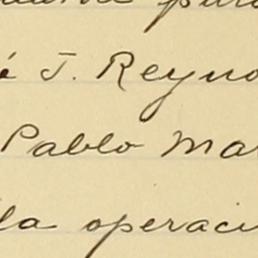 é J. Reyno
Pablo Mar
la operaci